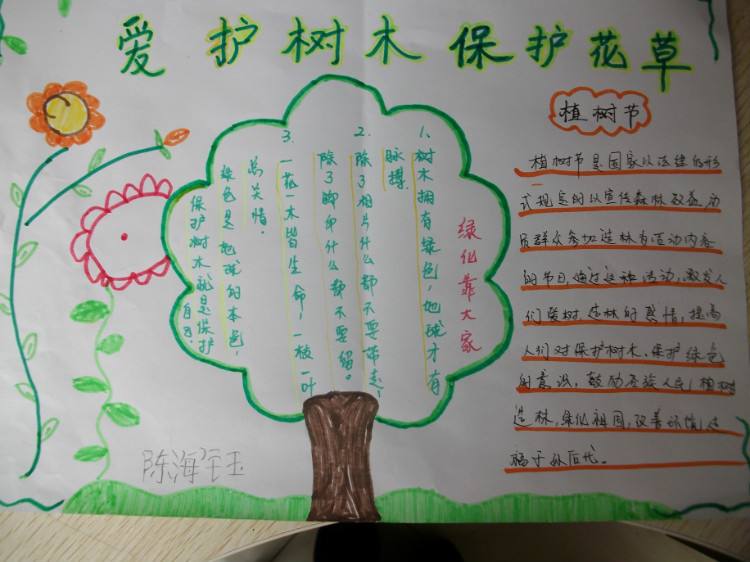 爱护树木 保护花草
绿化靠大家
1、树木拥有绿色,地球才有
脉搏
2、除了相片什么都不要带走,
除了脚印什么都不要留。
3、一花一木皆生命,一枝一叶
总关情。
绿色是地球的本色,
保护树木就是保护
自己。
植树节
植树节是国家以法律的形
式规定的以宣传森林效益,动
员群众参加造林为活动内容
的节日,通过这种活动,激发人
们爱树造林的感情,提高
人们对保护树木、保护绿色
的意识,鼓励各族人民,植树
造林,绿化祖国,改善环境,造
福子孙后代。
陈海